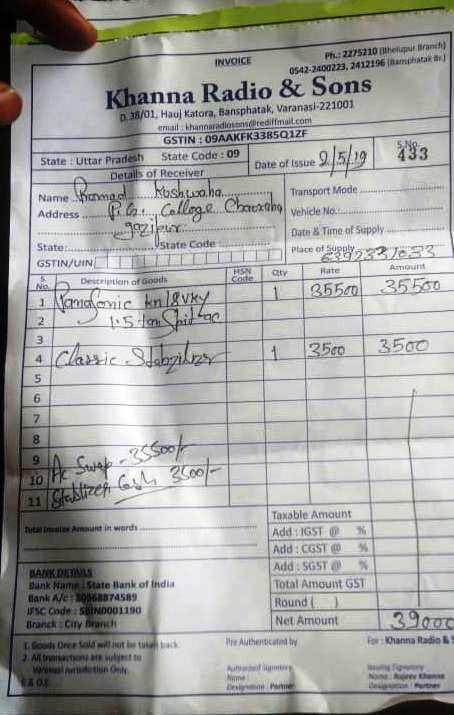 INVOICE
Ph.: 2275210 (Bhelupur Branch)
0542-2400223, 2412196 (Bansphatak Br.)
Khanna Radio & Sons
D.38/01, Hauj Katora, Bansphatak, Varanasi-221001
email : khannaradiosons@rediffmail.com
GSTIN : 09AAKFK3385Q1ZF
State : Uttar Pradesh State Code : 09 Date of Issue 2/5/19 S.No. 433
Details of Receiver
Name Pramod Kushwaha Transport Mode
Address P.G. College Chauraha Vehicle No.:
Gazipur Date & Time of Supply
State: State Code : Place of Supply
GSTIN/UIN 6392331033
S. No. Description of Goods HSN Code Qty Rate Amount
1 Panasonic 1 35500 35500
2 1.5 ton Split ac
3
4 Classic Stabilizer 1 3500 3500
5
6
7
8
9 Ac Swap - 35500/-
10 Stabilizer Cash 3500/-
11
Taxable Amount
Total Invoice Amount in words Add : IGST @ %
Add : CGST @ %
Add : SGST @ %
BANK DETAILS Total Amount GST
Bank Name : State Bank of India
Bank A/c : 30968874589 Round ( )
IFSC Code : SBIN0001190
Branck : City Branch Net Amount 39000
1. Goods Once Sold will not be taken back Pre Authenticated by For : Khanna Radio & S
2. All transactions are subject to
Varanasi Jurisdiction Only. Authorised Signatory Issuing Signatory
E.& O.E. Name : Name : Rajeev Khanna
Designation : Partner Designation : Partner